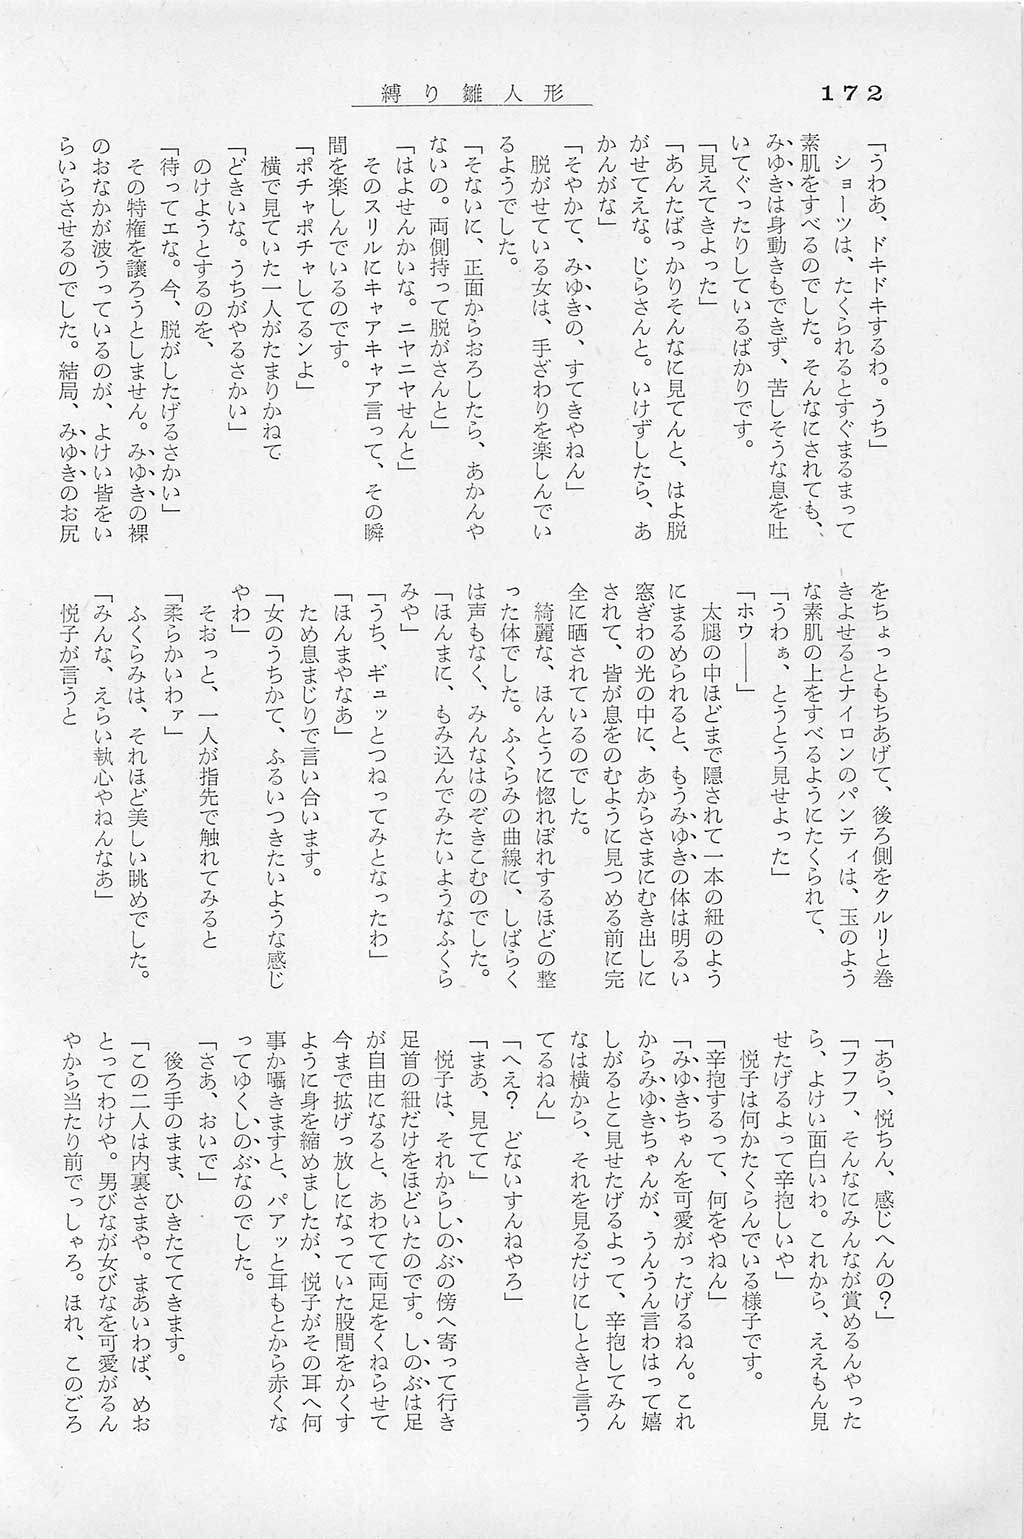 172
縛り雛人形
「うわあ、ドキドキするわ。うち」
ショーツは、たくられるとすぐまるまって
素肌をすべるのでした。そんなにされても、
みゆきは身動きもできず、苦しそうな息を吐
いてぐったりしているばかりです。
「見えてきよった」
「あんたばっかりそんなに見てんと、はよ脱
がせてえな。じらさんと。いけずしたら、あ
かんがな」
「そやかて、みゆきの、すてきやねん」
脱がせている女は、手ざわりを楽しんでい
るようでした。
「そないに、正面からおろしたら、あかんや
ないの。両側持って脱がさんと」
「はよせんかいな。ニヤニヤせんと」
そのスリルにキャアキャア言って、その瞬
間を楽しんでいるのです。
「ポチャポチャしてるンよ」
横で見ていた一人がたまりかねて
「どきいな。うちがやるさかい」
のけようとするのを、
「待ってエな。今、脱がしたげるさかい」
その特権を譲ろうとしません。みゆきの裸
のおなかが波うっているのが、よけい皆をい
らいらさせるのでした。結局、みゆきのお尻
をちょっともちあげて、後ろ側をクルリと巻
きよせるとナイロンのパンティは、玉のよう
な素肌の上をすべるようにたくられて、
「うわぁ、とうとう見せよった」
「ホウ――」
太腿の中ほどまで隠されて一本の紐のよう
にまるめられると、もうみゆきの体は明るい
窓ぎわの光の中に、あからさまにむき出しに
されて、皆が息をのむように見つめる前に完
全に晒されているのでした。
綺麗な、ほんとうに惚れぼれするほどの整
った体でした。ふくらみの曲線に、しばらく
は声もなく、みんなはのぞきこむのでした。
「ほんまに、もみ込んでみたいようなふくら
みや」
「うち、ギュッとつねってみとなったわ」
「ほんまやなあ」
ため息まじりで言い合います。
「女のうちかて、ふるいつきたいような感じ
やわ」
そおっと、一人が指先で触れてみると
「柔らかいわァ」
ふくらみは、それほど美しい眺めでした。
「みんな、えらい執心やねんなあ」
悦子が言うと
「あら、悦ちん、感じへんの？」
「フフフ、そんなにみんなが賞めるんやった
ら、よけい面白いわ。これから、ええもん見
せたげるよって辛抱しいや」
悦子は何かたくらんでいる様子です。
「辛抱するって、何をやねん」
「みゆきちゃんを可愛がったげるねん。これ
からみゆきちゃんが、うんうん言わはって嬉
しがるとこ見せたげるよって、辛抱してみん
なは横から、それを見るだけにしときと言う
てるねん」
「へえ？　どないすんねやろ」
「まあ、見てて」
悦子は、それからしのぶの傍へ寄って行き
足首の紐だけをほどいたのです。しのぶは足
が自由になると、あわてて両足をくねらせて
今まで拡げっ放しになっていた股間をかくす
ように身を縮めましたが、悦子がその耳へ何
事か囁きますと、パアッと耳もとから赤くな
ってゆくしのぶなのでした。
「さあ、おいで」
後ろ手のまま、ひきたててきます。
「この二人は内裏さまや。まあいわば、めお
とってわけや。男びなが女びなを可愛がるん
やから当たり前でっしゃろ。ほれ、このごろ